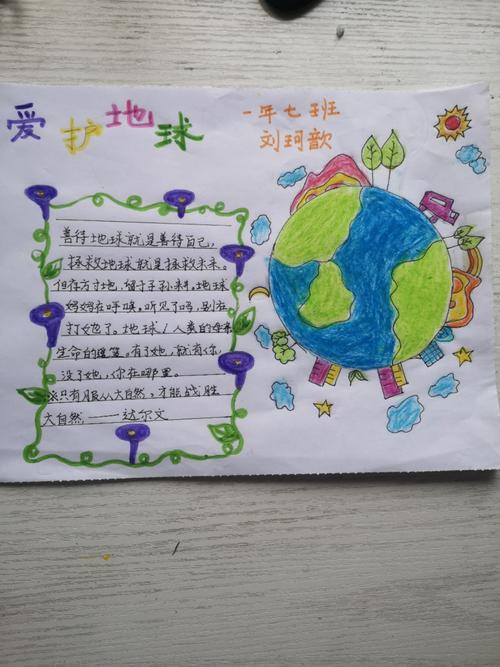 爱护地球
一年七班
刘珂歆
善待地球就是善待自己，
拯救地球就是拯救未来。
但存方寸地，留于子孙耕。地球
妈妈在呼唤。听见了吗，别在
打她了。地球！人类的母亲
生命的摇篮。有了她，就有你，
没了她，你在哪里。
※只有服从大自然，才能战胜
大自然 ——达尔文